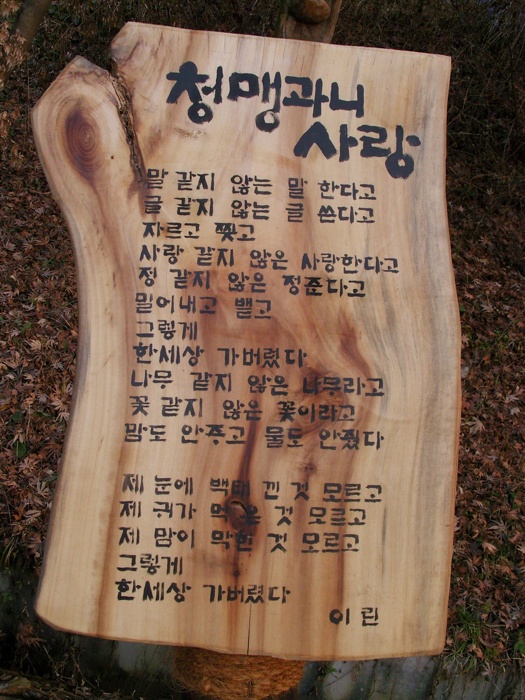 청맹과니
사랑
말 같지 않는 말 한다고
글 같지 않는 글 쓴다고
자르고 찢고
사랑 같지 않은 사랑한다고
정 같지 않은 정준다고
밀어내고 뱉고
그렇게
한세상 가버렸다
나무 같지 않은 나무라고
꽃 같지 않은 꽃이라고
맘도 안주고 물도 안줬다
제 눈에 백태 낀 것 모르고
제 귀가 먹은 것 모르고
제 맘이 막힌 것 모르고
그렇게
한세상 가버렸다
이 린